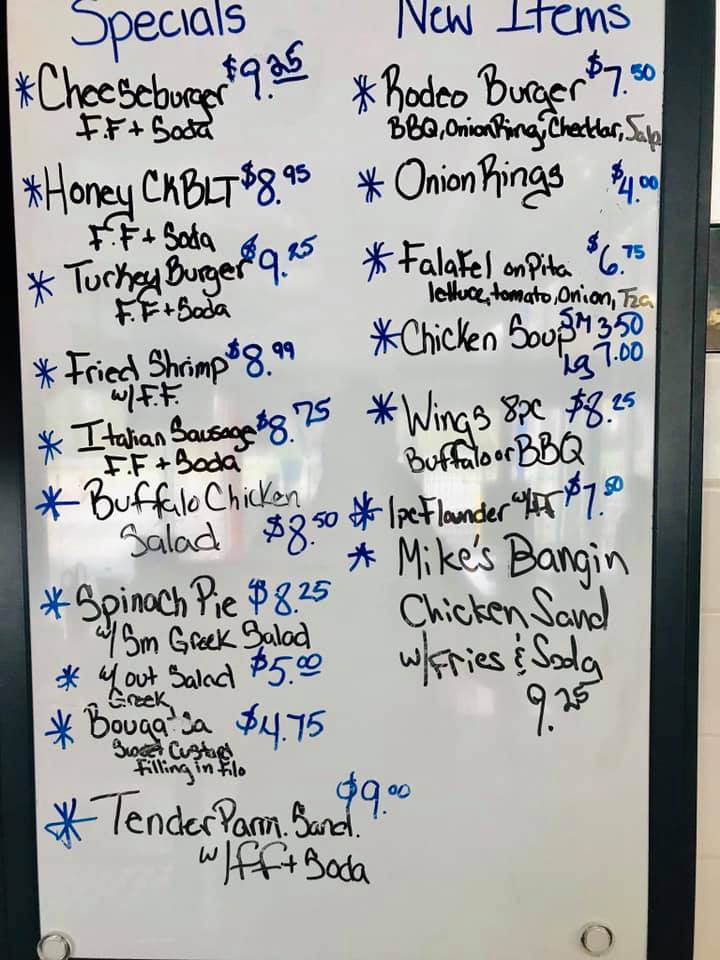 Specials
*Cheeseburger $9.25
F.F + Soda
*Honey CKBLT $8.95
F.F + Soda
* Turkey Burger $9.25
F.F + Soda
* Fried Shrimp $8.99
w/F.F.
* Italian Sausage $8.75
F.F + Soda
* Buffalo Chicken
Salad $8.50
* Spinach Pie $8.25
w/Sm Greek Salad
* w/out Salad $5.00
Greek
* Bouga Sa $4.75
Sweet Custard
Filling in Filo
* Tender Parm. Sand. $9.00
w/ff + Soda
New Items
* Rodeo Burger $7.50
BBQ, Onion Ring, Cheddar,
* Onion Rings $4.00
* Falafel on Pita $6.75
lettuce, tomato, Onion, Tza
* Chicken Soup SM 3.50
Lg 7.00
* Wings 8pc $8.25
Buffalo or BBQ
* 1pc Flounder $7.50
* Mike's Bangin
Chicken Sand
w/Fries & Soda
9.25